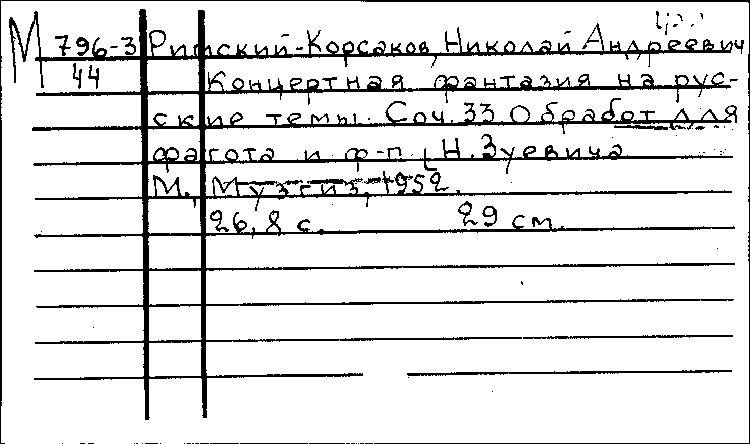 М 796-3 Римский-Корсаков, Николай Андреевич
44 Концертная фантазия на рус-
ские темы. Соч. 33. Обработ для
фагота и ф-п. Н. Зуевича
М., Музгиз, 1952.
26, 8 с. 29 см.